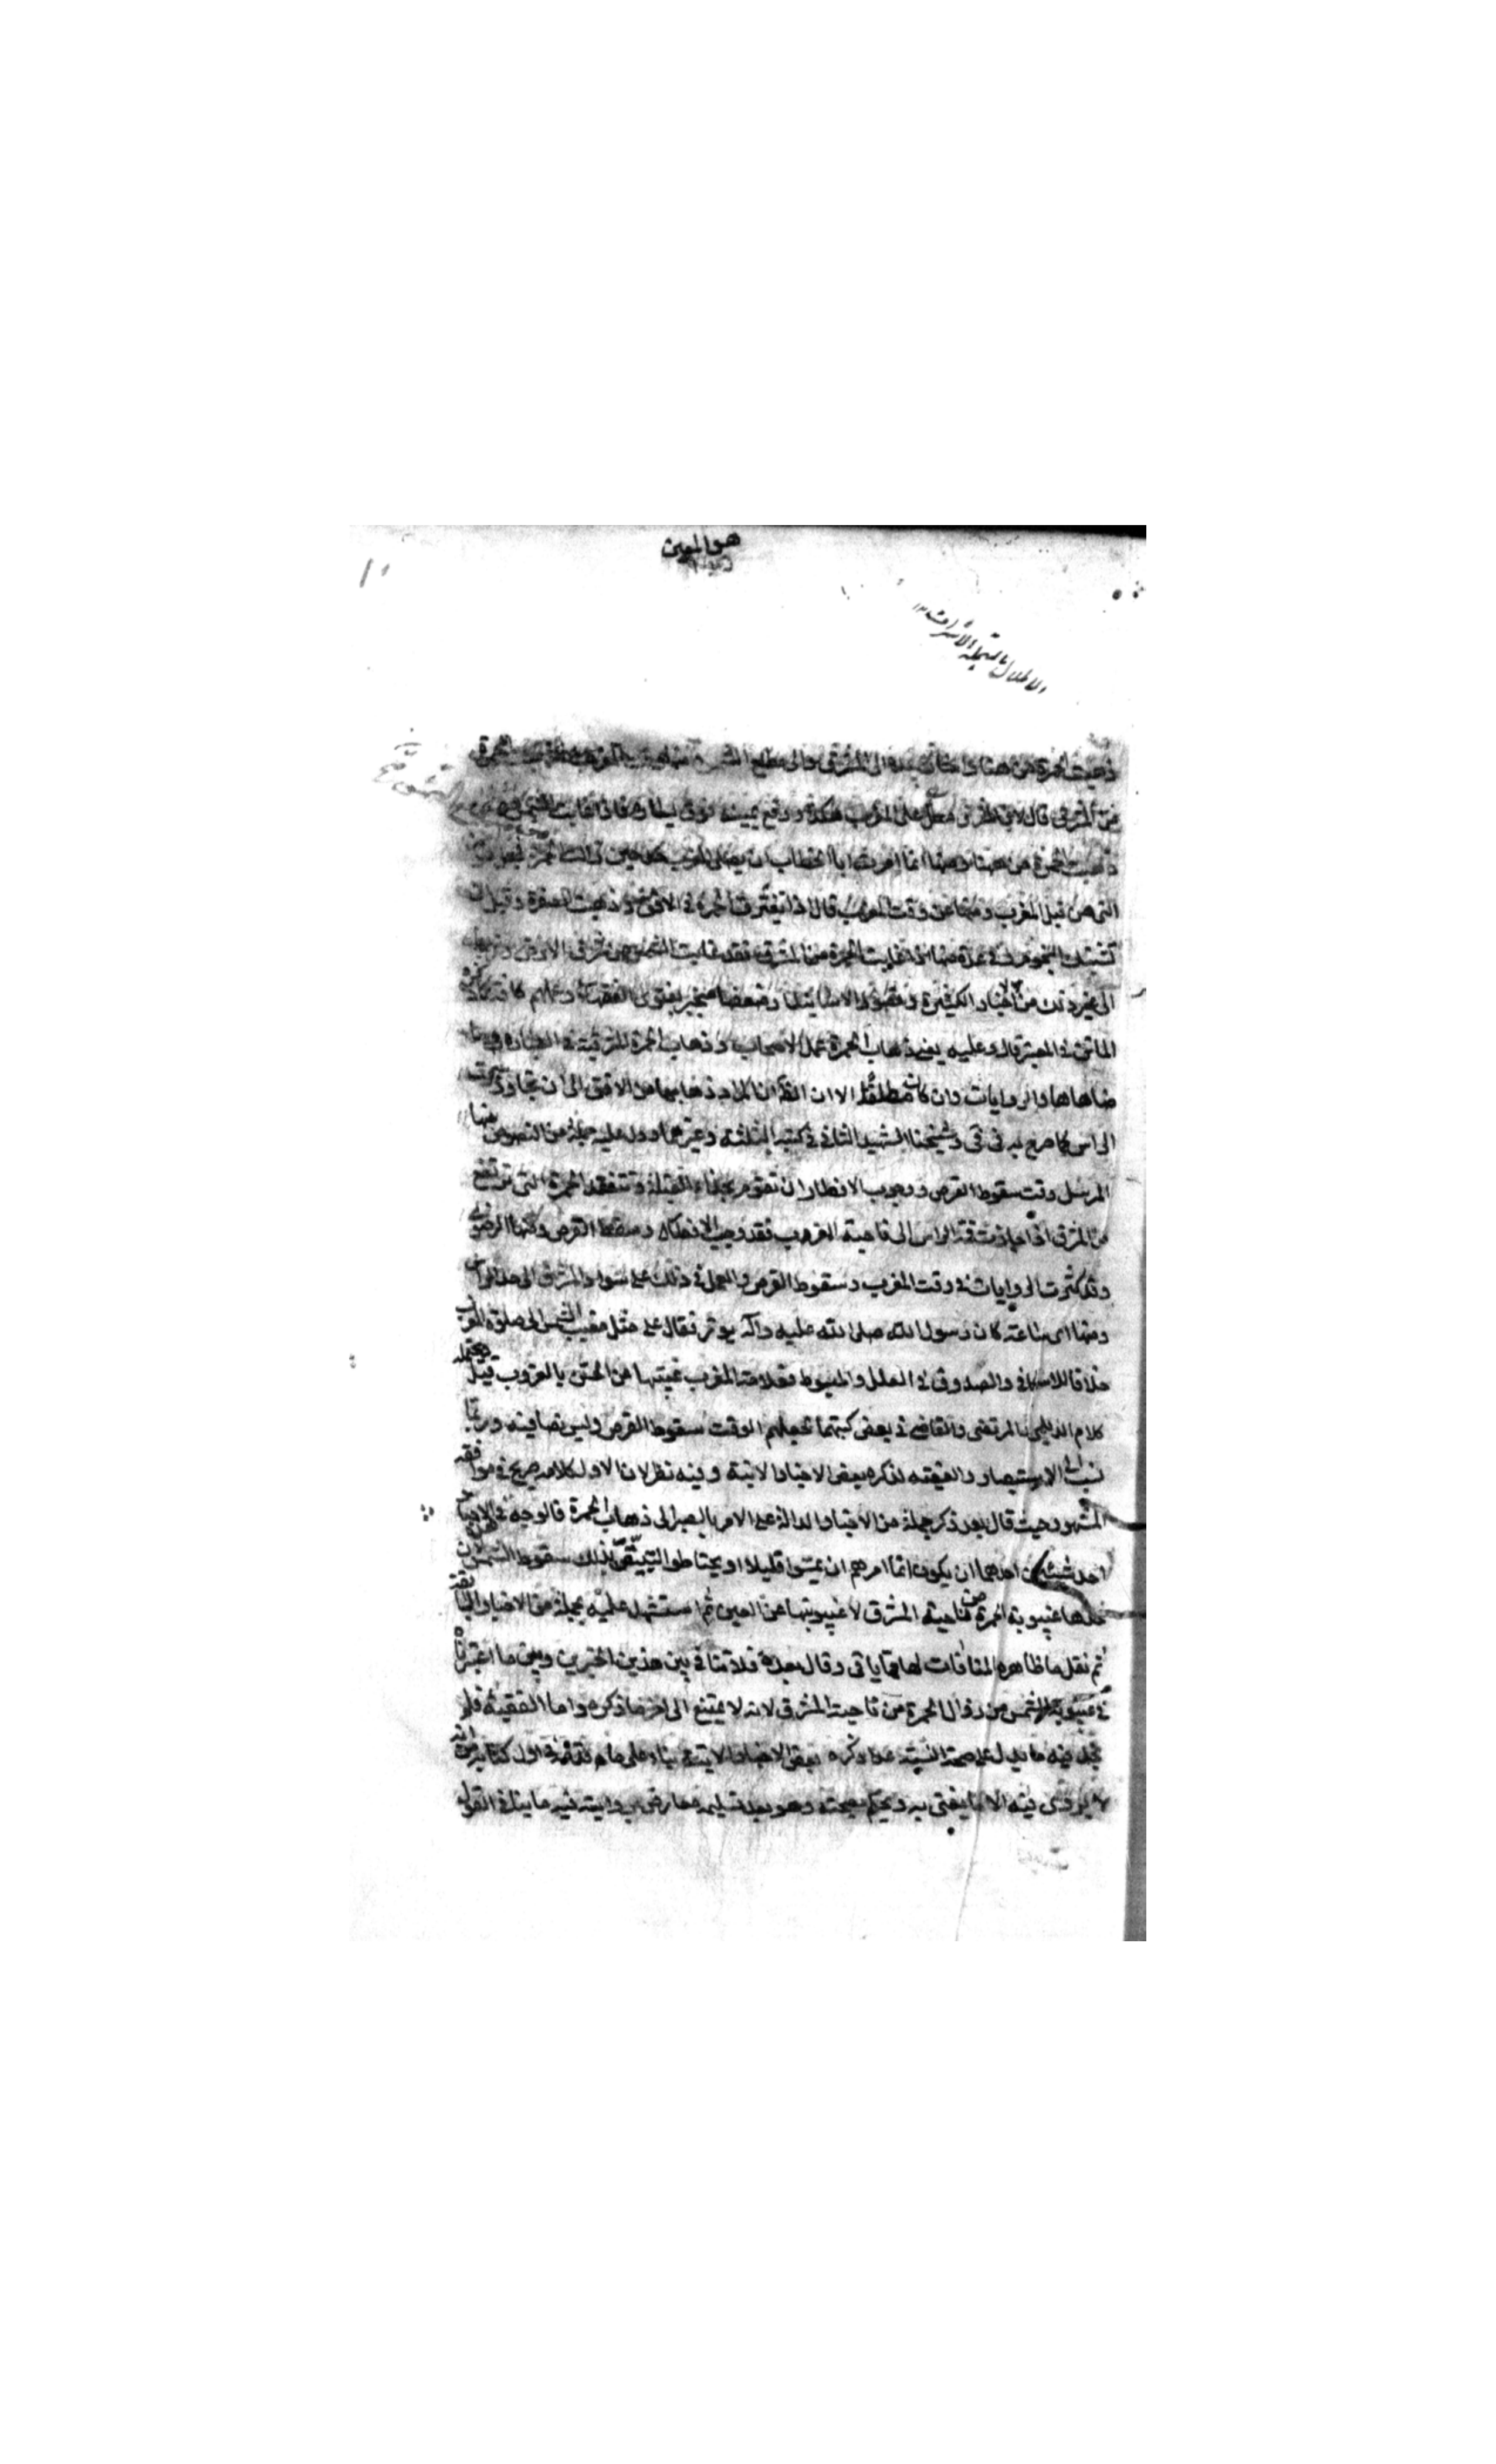 هو المعين
الاطلال بالمهملة الاشراف ١٢
ذهبت الحمرة من هنا
من المشرق قال لان المشرق مطل على المغرب هكذا ورفع يمينه فوق يساره فاذا غابت الشمس
ذهبت الحمرة من ههنا ومنها انما امرت ابا الخطاب ان يصلى المغرب حين زالت الحمرة
التى من قبل المغرب ومنها عن وقت المغرب قال اذا تغيرت الحمرة فى الافق وذهبت الصفرة وقبل ان
تشتبك النجوم وفى عدة منها اذا غابت الحمرة من المشرق فقد غابت الشمس من شرق الارض
الى غير ذلك من الاخبار الكثيرة وقصور الاسانيد او ضعفها منجبر بفتوى الفقهاء وعملهم كافة كما ذكره
الماتن فى المعتبر قال وعليه يعنى ذهاب الحمرة عمل الاصحاب وذهاب الحمرة المشرقية فى العبارة وما
ضاهاها والروايات وان كانت مطلقة الا ان المراد ذهابها من الافق الى ان تجاوز سمت
الراس كما صرح به فى وشيخنا الشهيد الثانى فى كتبه الثلثة وغيرهما ودل عليه جملة من النصوص منها
المرسل وقت سقوط القرص ووجوب الافطار ان تقوم بحذاء القبلة وتتفقد الحمرة التى ترتفع
من المشرق اذا جازت قمة الراس الى ناحية المغرب فقد وجب الافطار وسقط القرص ومنها الرضوى
وقد كثرت الروايات فى وقت المغرب وسقوط القرص والعمل فى ذلك على سواد المشرق الى حد الراس
ومنها اى ساعة كان رسول الله صلى الله عليه وآله يوتر فقال على مثل مغيب الشمس الى صلوة المغرب
خلافا للاسكافى والصدوق فى العلل والمبسوط فعلامة المغرب غيبتها عن الحس بالغروب قيل ويحتمله
كلام الديلمى والمرتضى والقاضى فى بعض كتبهما لجعلهم الوقت سقوط القرص وليس نصا فيه وربما
نسب الى الاستبصار والفقيه لذكره بعض الاخبار الاتية وفيه نظر لان الاول كلامه صريح فى موافقة
المشهور حيث قال بعد ذكر جملة من الاخبار الدالة على الامر بالصبر الى ذهاب الحمرة فالوجه فى الاخبار
احد شيئين احدهما ان يكون انما امرهم ان يمسوا قليلا او يحتاطوا لتيقن بذلك سقوط الشمس لان
حدها غيبوبة الحمرة من ناحية المشرق لا غيبوبتها عن العين ثم استشهد عليه بجملة من الاخبار السابقة
ثم نقل ما ظاهره المنافات لها مما ياتى وقال بعده فلا تنافى بين هذين الخبرين وبين ما اعتبرناه
فى غيبوبة الشمس من زوال الحمرة من ناحية المشرق لانه لا يمتنع الى اخر ما ذكره واما الفقيه فلم
نجد فيه ما يدل على صحة النسبة عدا ذكره بعض الاخبار الاتية بناء على ما قدمه فى اول كتابه من انه
لا يروى فيه الا ما يفتى به ويحكم بصحته وهو بعد تسليمه معارض بروايته فيه ما ينافى القول